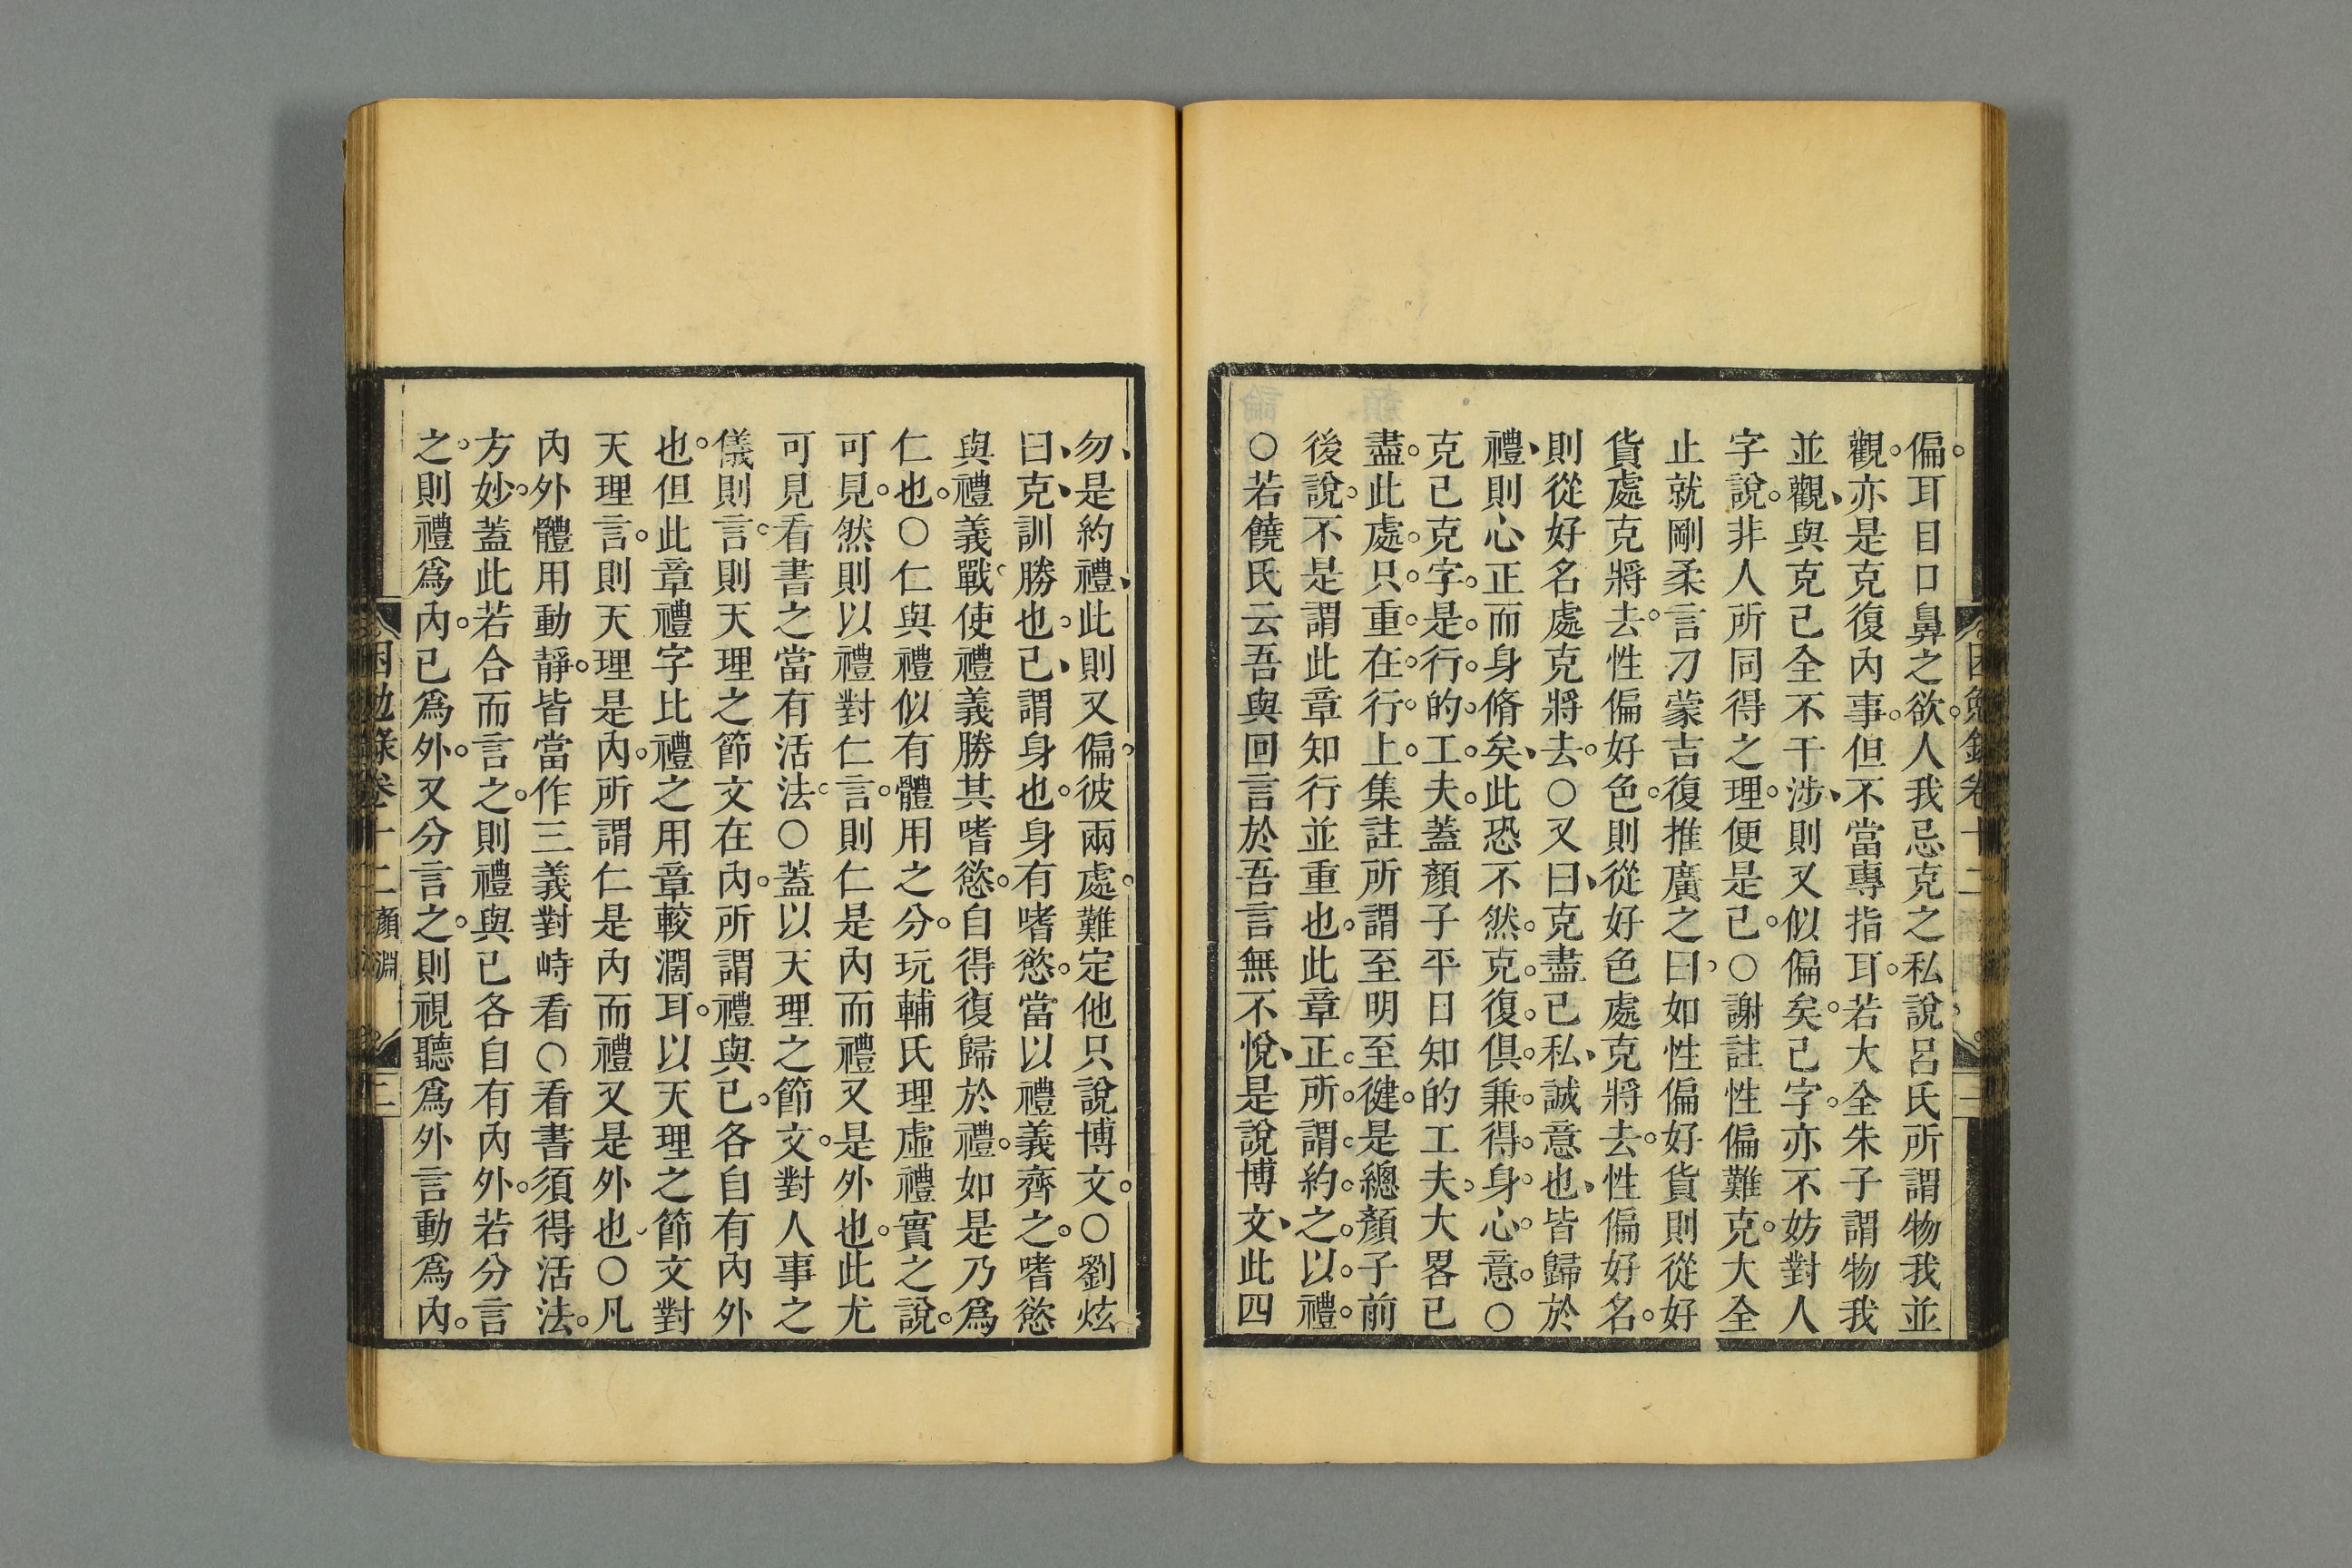 偏。耳目口鼻之欲。人我忌克之私。說呂氏所謂物我並
觀。亦是克復內事。但不當專指耳。若大全朱子謂物我
並觀、與克己全不干涉、則又似偏矣。己字。亦不妨對人
字說。非人所同得之理。便是己。○謝註性偏難克。大全
止就剛柔言刀蒙吉復。推廣之曰、如性偏好貨則從好
貨處克將去。性偏好色。則從好色處克將去。性偏好名。
則從好名處克將去。○又曰、克盡己私、誠意也、皆歸於
禮、則心正而身脩矣、此恐不然。克。復。俱。兼。得。身。心。意。○
克己克字。是。行。的。工。夫。蓋顏子平日知的工夫、大畧已
盡。此處。只。重。在。行。上。集註所謂至明至健。是總顏子前
後說。不是謂此章知行並重也。此章正。所。謂。約。之。以。禮。
○若饒氏云吾與回言於吾言無不悅、是說博文、此四
勿、是約禮、此則又偏。彼兩處。難定他只說博文。○劉炫
曰、克、訓勝也。己、謂身也。身有嗜慾。當以禮義齊之。嗜慾
與禮義戰。使禮義勝其嗜慾。自得復歸於禮。如是乃爲
仁也。○仁與禮似有體用之分。玩輔氏理虛禮實之說。
可見。然則以禮對仁言。則仁是內而禮又是外也。此尤
可見看書之當有活法。○蓋以天理之節文。對人事之
儀則言。則天理之節文在內。所謂禮與己。各自有內外
也。但此章禮字比禮之用章較濶耳。以天理之節文對
天理言。則天理是內。所謂仁是內而禮又是外也。○凡
內外體用動靜。皆當作三義對峙看。○看書須得活法。
方妙。蓋此若合而言之。則禮與己各自有內外。若分言
之。則禮爲內。己爲外。又分言之。則視聽爲外言動爲內。
困勉錄卷十二 顏淵
二